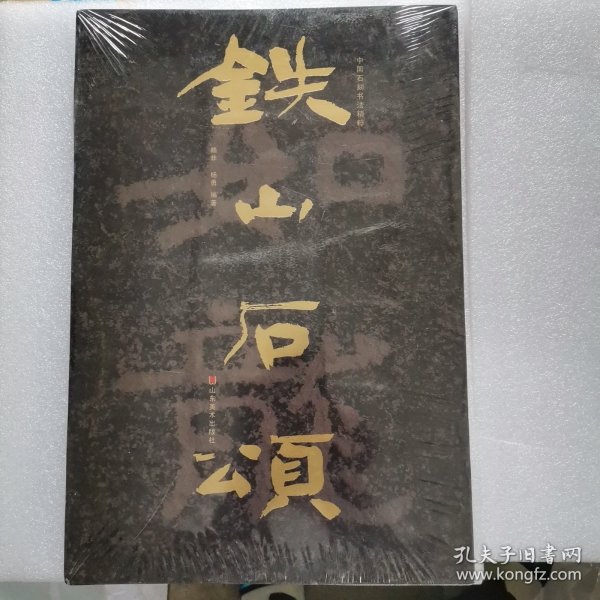 中国石刻书法精粹
鉄山石頌
赖非 杨勇 编著
山东美术出版社
孔夫子旧書网
www.kongfz.com